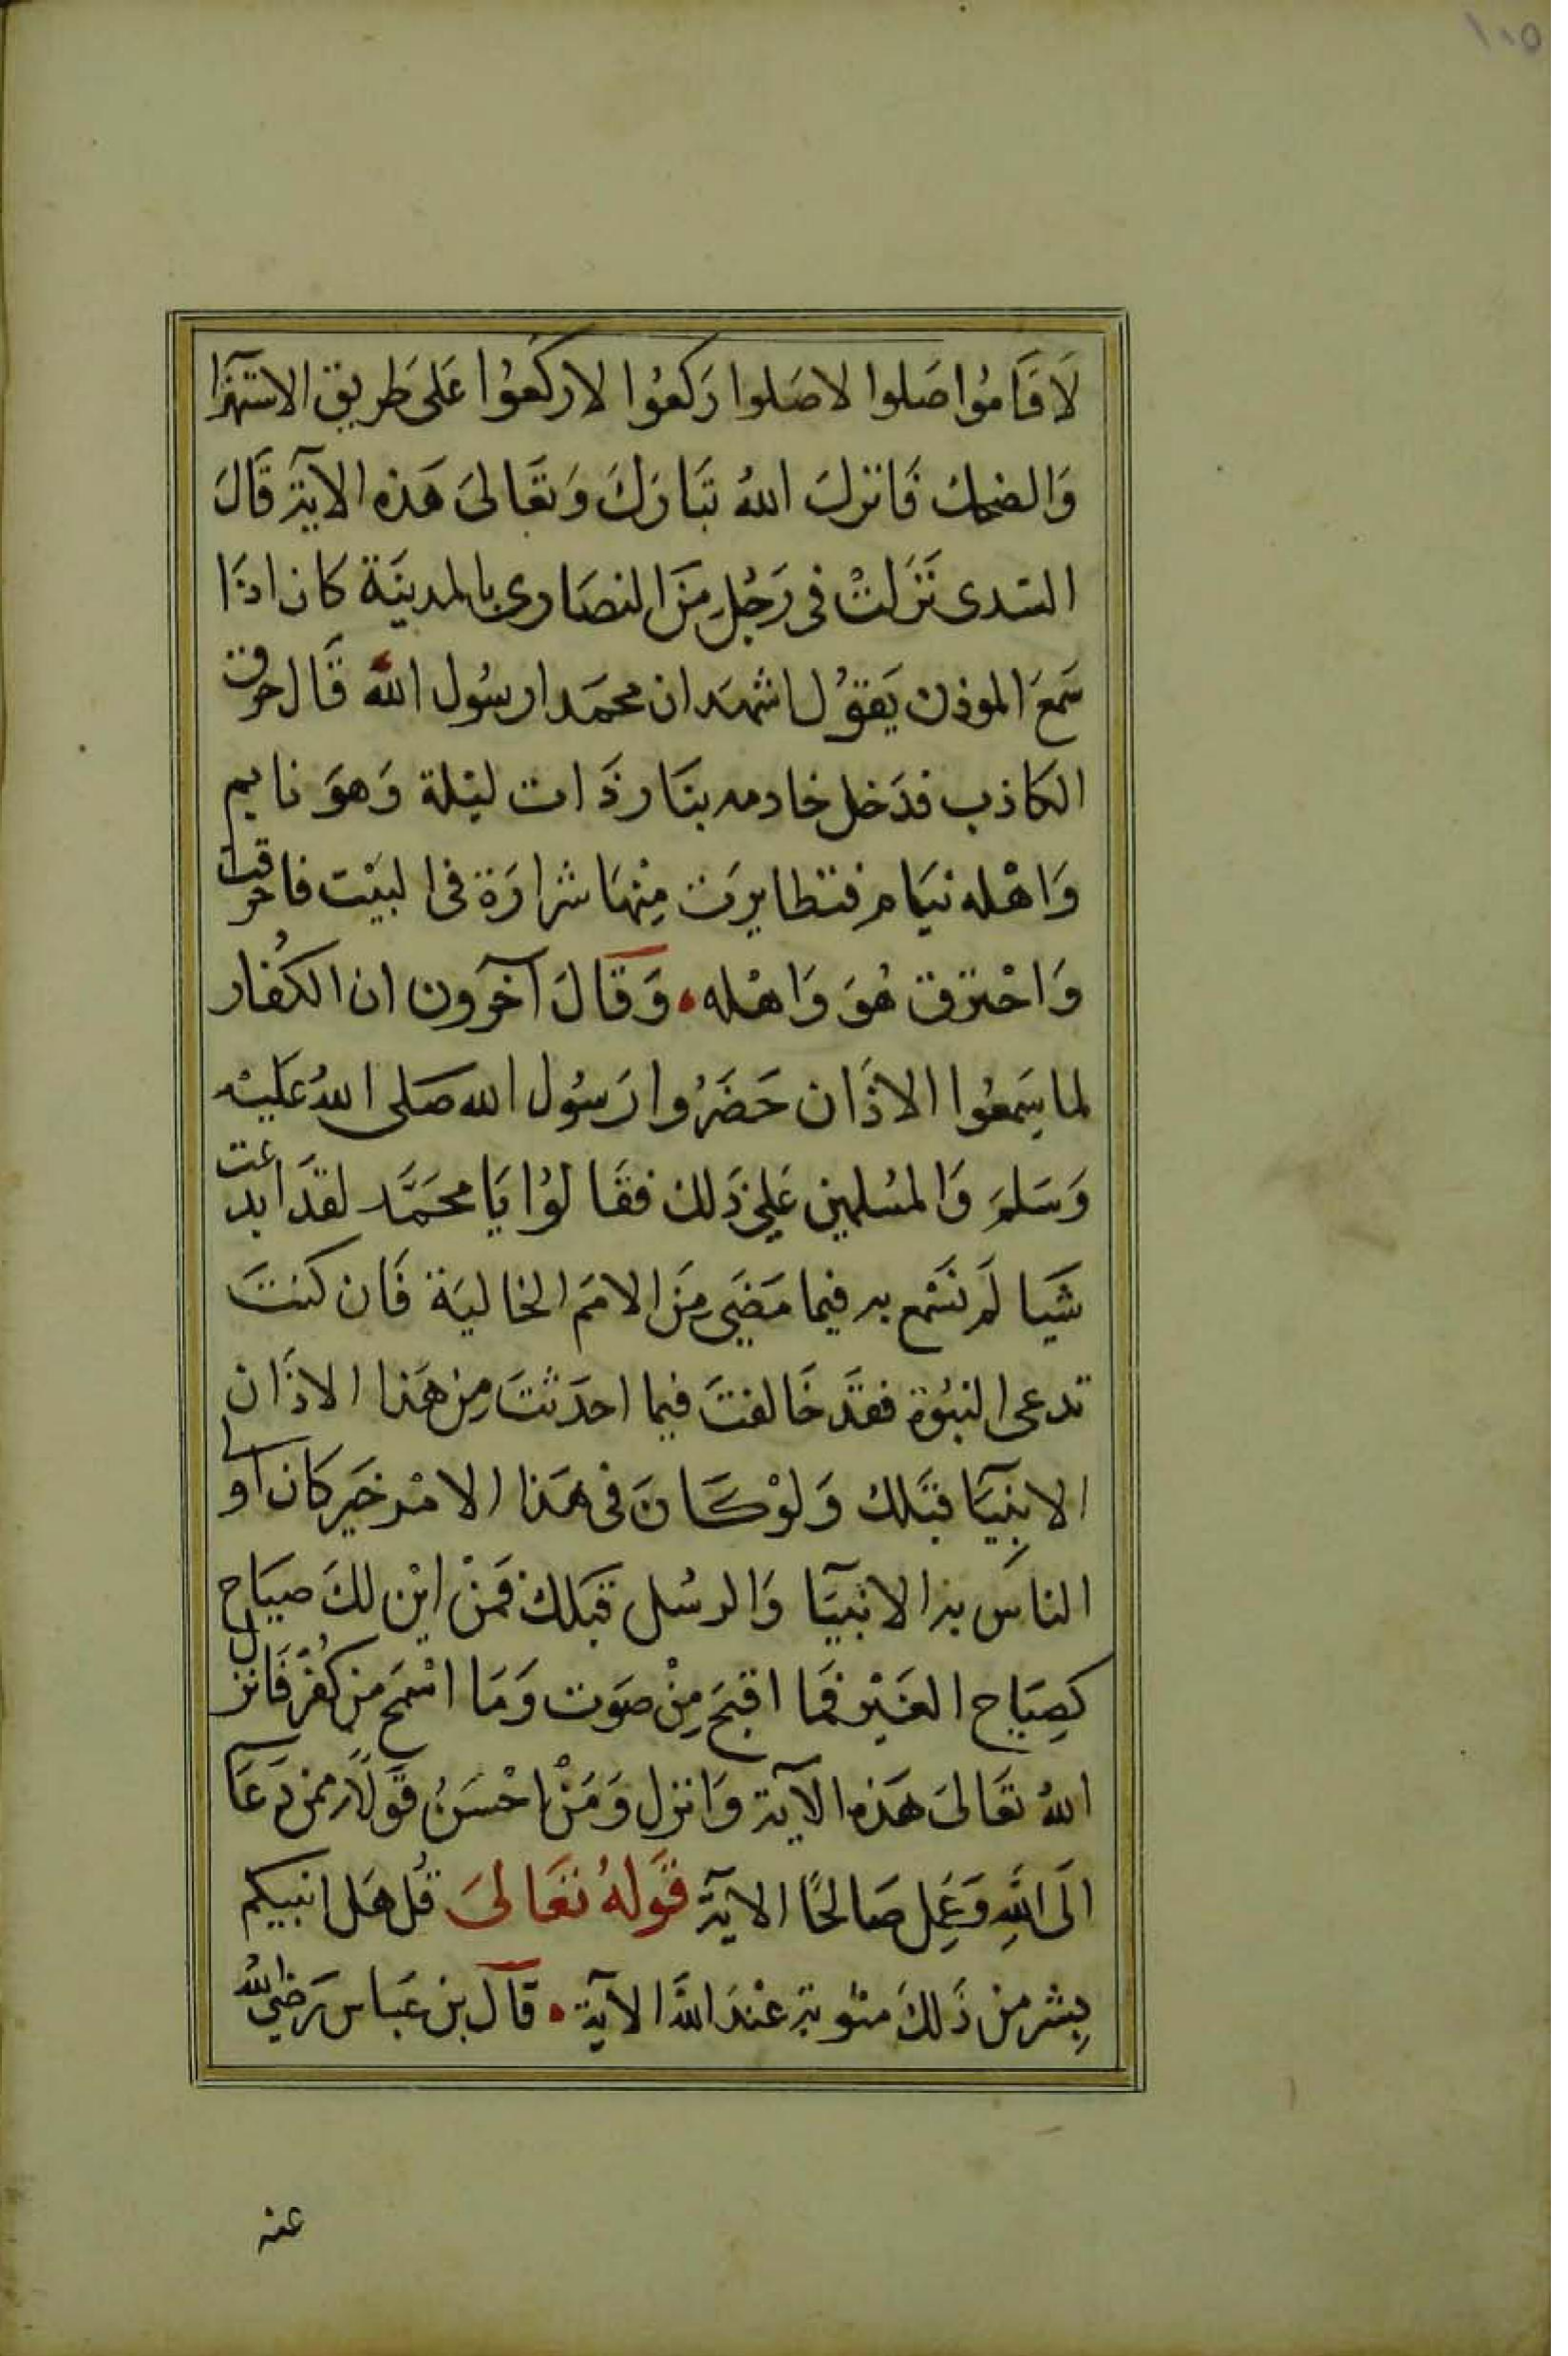 ١٠٥
لَا قَامُوا صَلوا لا صَلوا رَكعُوا لا ركَعُوا عَلى طريق الاستهزآ
وَالضحك فَانزل اللهُ تبَارَكَ وَتعَالىَ هَذه الآية قَالَ
السّدى نَزَلتْ فى رَجُلٍ مِنَ النصَارى بالمدينَة كان اذَا
سَمعَ الموذن يَقوُل اشهَد ان محمَدا رسُول الله قَال حرق
الكاذب فدَخل خادمه بنَار ذَات ليْلة وَهوَ نايم
وَاهْله نيَام فتطايرت مِنْهَا شرارَة فى البيْت فاحرقت
وَاحْترق هُوَ وَاهْله وَقَالَ آخَرون ان الكفُار
لما سَمعُوا الاذَان حَضَرُوا رَسُول الله صَلى اللهُ عَليْه
وَسَلمَ وَالمسُلمين عَلى ذَلك فقَالوُا يَا محَمَّد لقدَ ابدعت
شيَا لَم نَسْمع به فيما مَضَى مِنَ الامَم الخاليَة فَان كنتَ
تدعى النبُوة فقَد خَالفتَ فيما احدَثتَ مِن هَذا الاذَان
الانبِيَآ قبَلك وَلوْ كَانَ فى هَذا الامْر خَير كان اولى
الناسَ به الانبيَآ وَالرسُل قبَلك فَمنْ ايْن لكَ صيَاح
كَصِيَاح العَيْر فَما اقبَح مِنْ صَوت وَمَا اسْمَح من كُفرْ فَانزل
اللهُ تعَالىَ هَذه الآية وَانزل وَمَنْ احْسَنُ قَولاً ممن دَعَا
الَى اللهِ وَعَمِل صَالحًا الآية قَولهُ تعَالىَ قُل هَل انبيكم
بِشر من ذَلكَ مثوبة عنْدَ الله الآية قَالَ بن عَباس رَضي الله
عنه